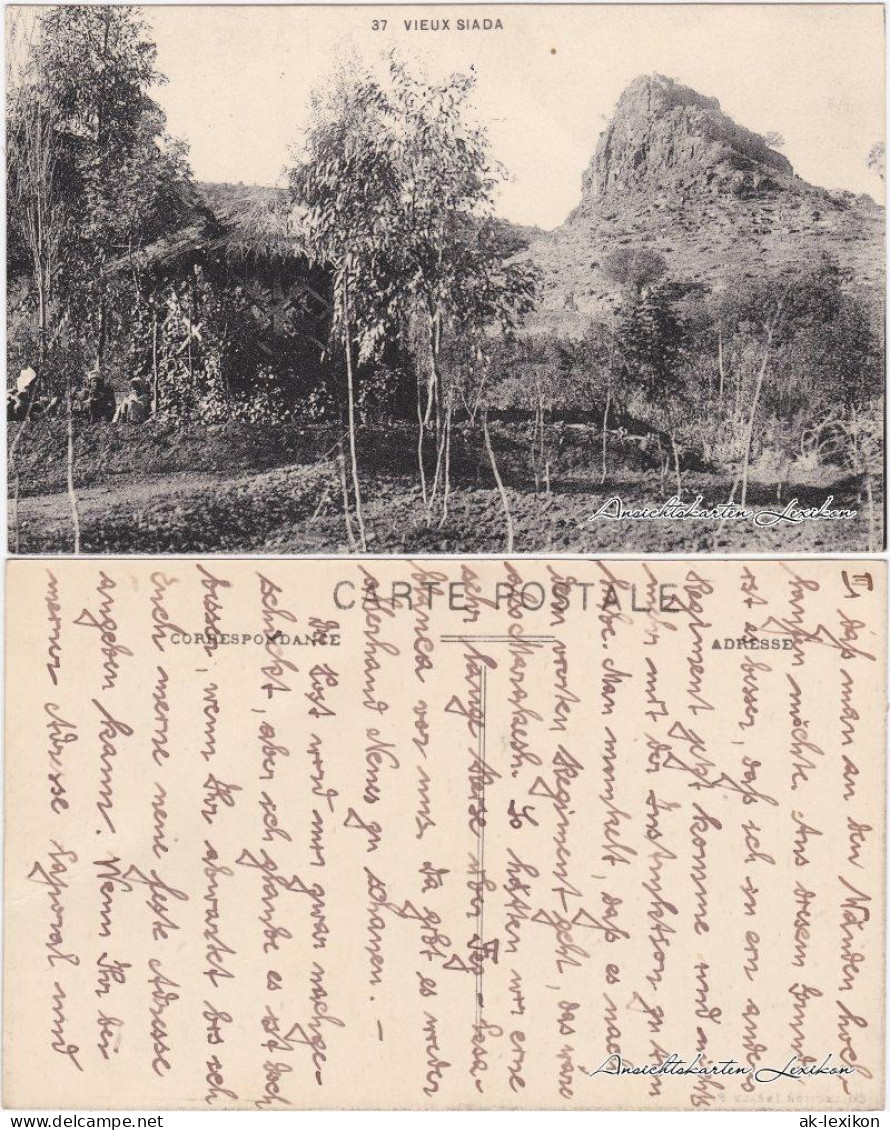 37 VIEUX SIADA
Ansichtskarten Lexikon
CARTE POSTALE
CORRESPONDANCE
ADRESSE
III daß man an den Wänden hoch-
hangen möchte. Aus diesem Grund
ist es besser, daß ich in ein anderes
Regiment jetzt komme und nichts
mehr mit der Instruktion zu tun
habe. Man munkelt, daß es nach
dem vierten Regiment geht, das wäre
also Marakesh. So hätten wir eine
sehr lange Reise über Fez - Casa-
blanca vor uns. Da gibt es wieder
allerhand Neues zu schauen. -
Die Post wird mir zwar nachge-
schickt, aber ich glaube es ist doch
besser, wenn Ihr abwartet bis ich
Euch meine neue feste Adresse
angeben kann. Wenn Ihr bei
meiner Adresse Caporal und
Ansichtskarten Lexikon
www.delcampe.net
ak-lexikon